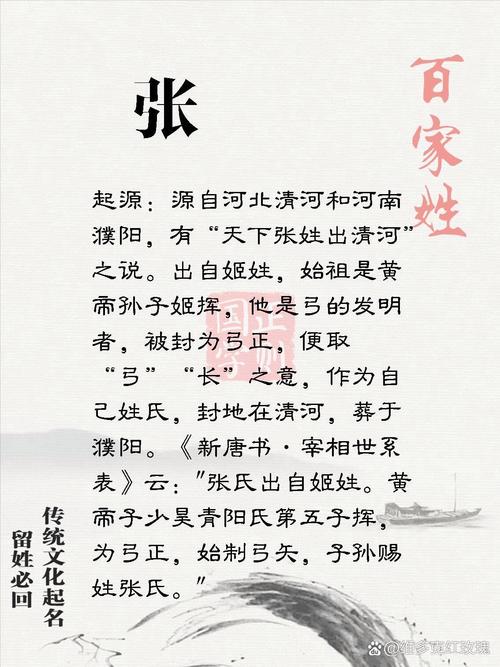 百家姓
张
起源：源自河北清河和河南
濮阳，有“天下张姓出清河”
之说。出自姬姓，始祖是黄
帝孙子姬挥，他是弓的发明
者，被封为弓正，便取
“弓”“长”之意，作为自
己姓氏，封地在清河，葬于
濮阳。《新唐书·宰相世系
表》云："张氏出自姬姓。黄
帝子少昊青阳氏第五子挥，
为弓正，始制弓矢，子孙赐
姓张氏。"
传统文化起名
留姓必回